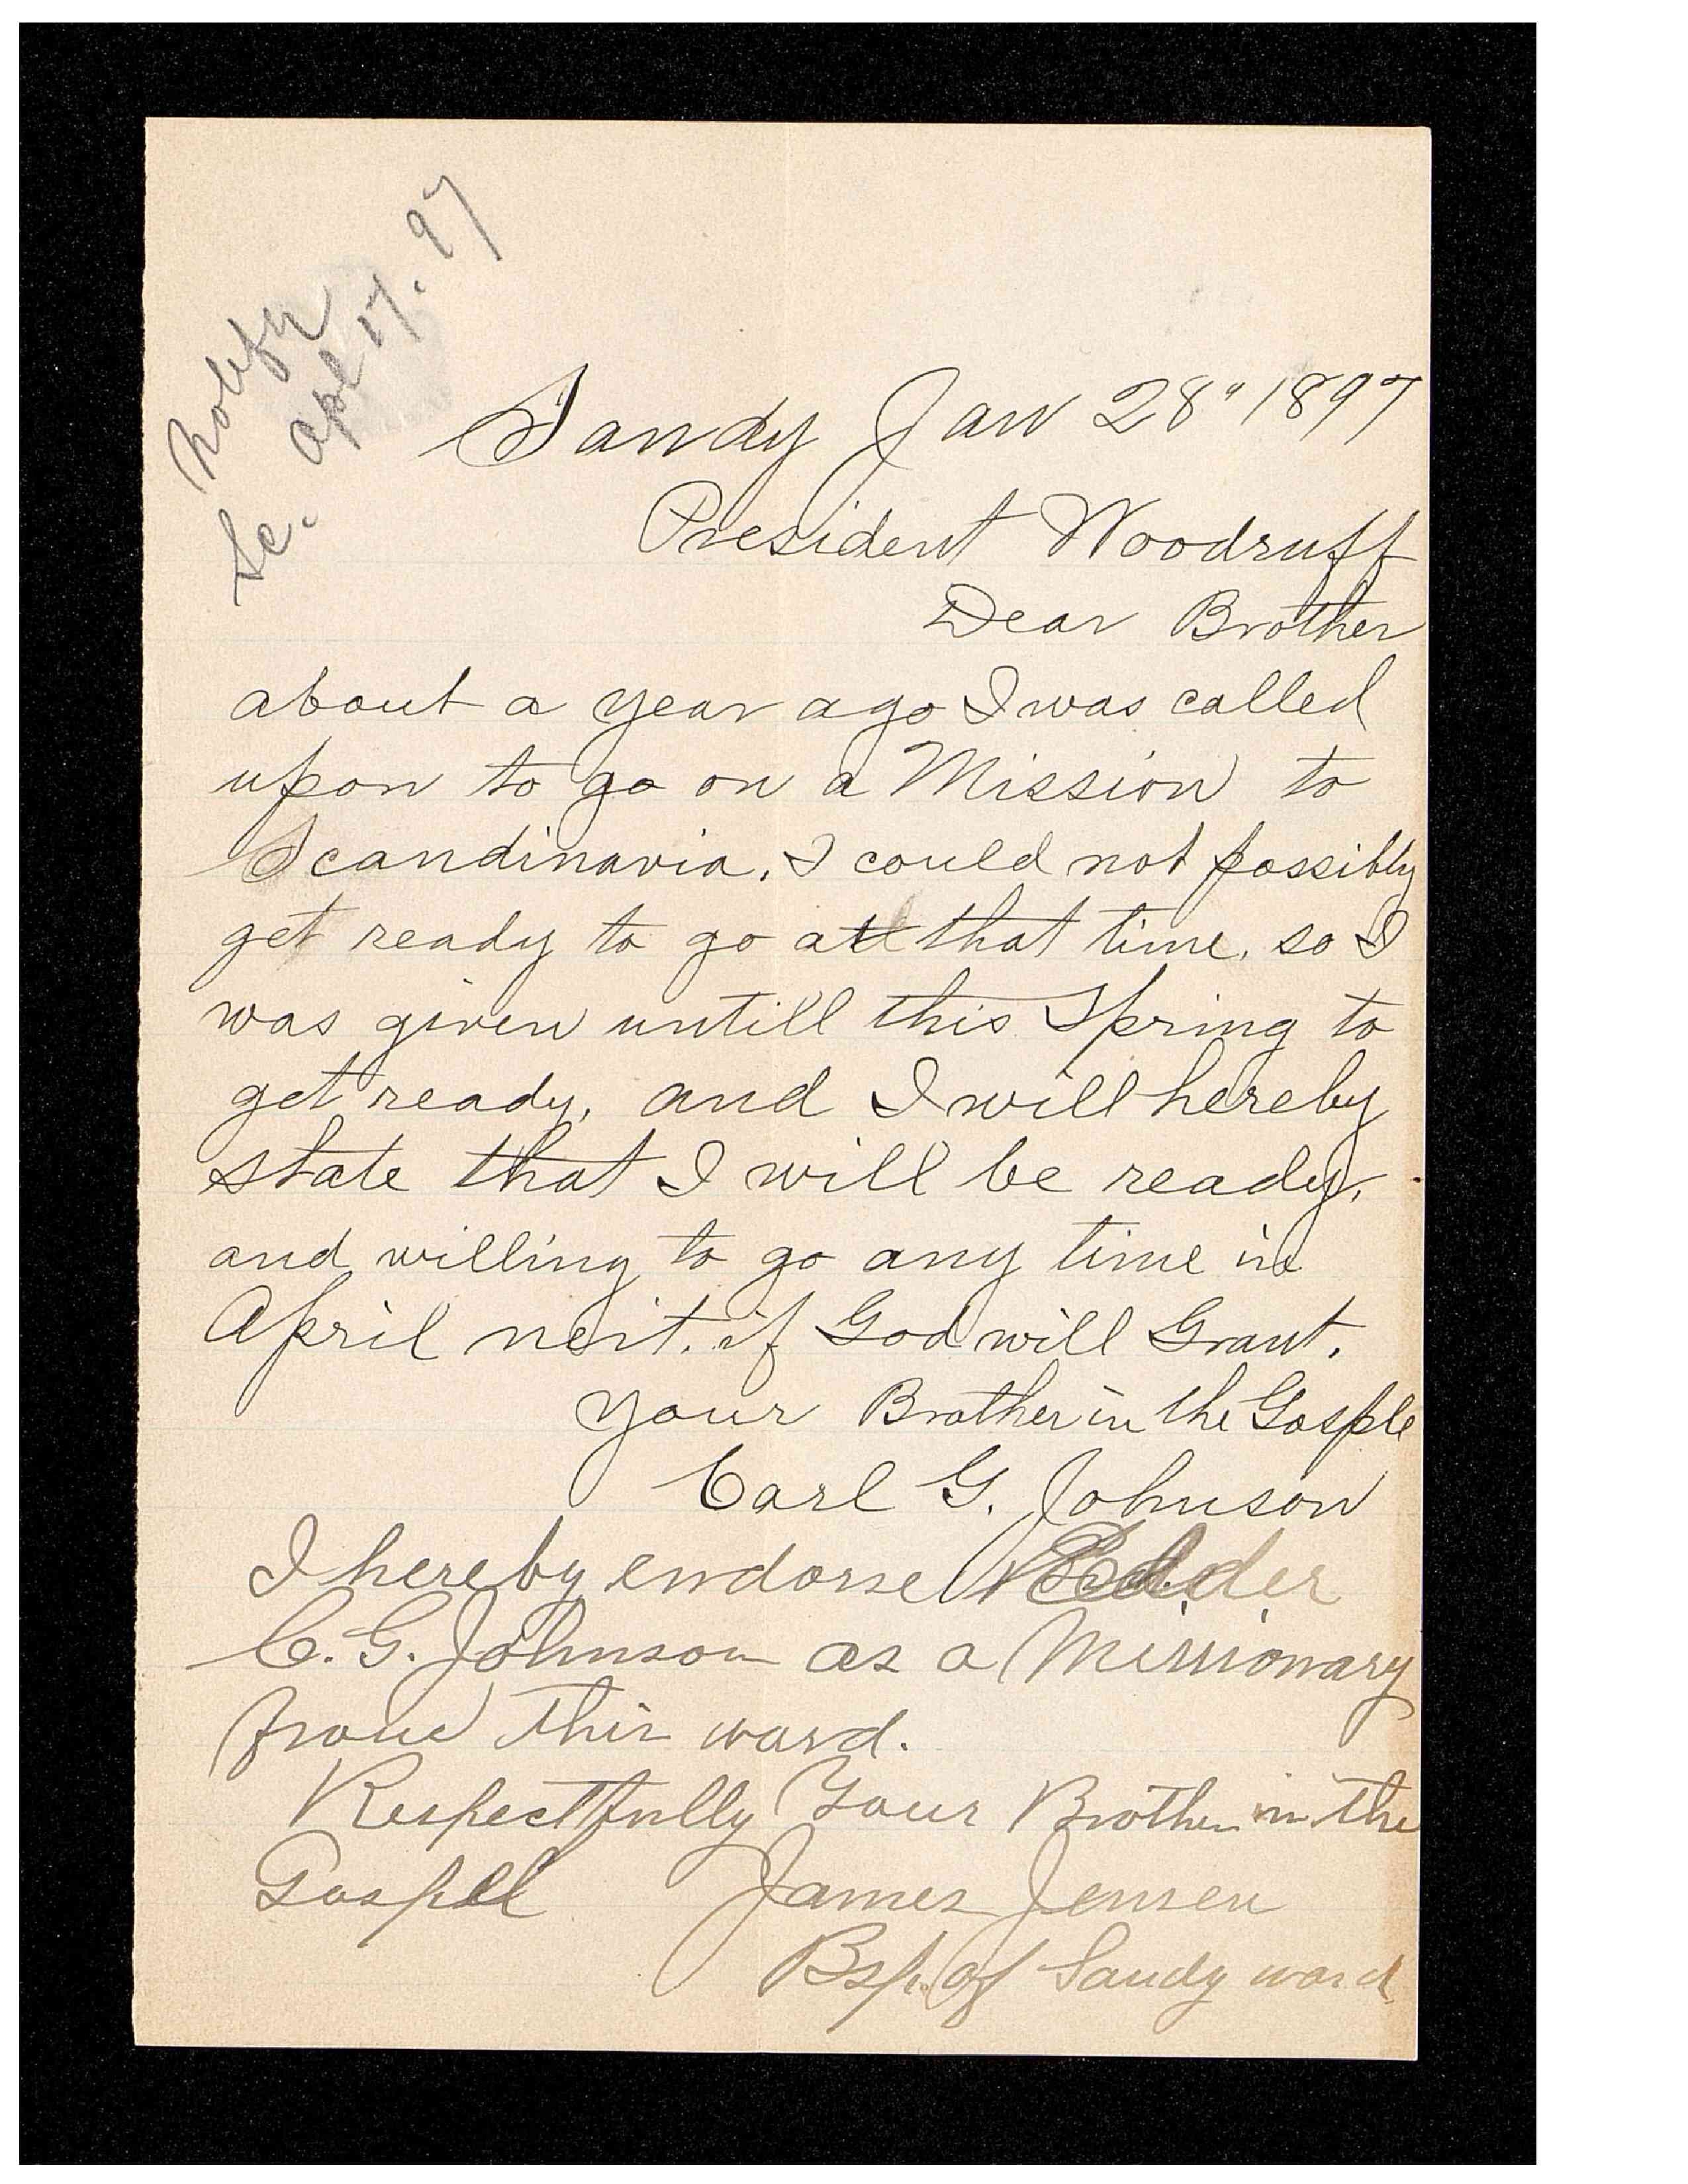 Notify
Sc. Apl 17. 97
Sandy Jan 28" 1897
President Woodruff
Dear Brother
about a year ago I was called
upon to go on a Mission to
Scandinavia. I could not possibly
get ready to go at that time, so I
was given untill this Spring to
get ready, and I will hereby
state that I will be ready,
and willing to go any time in
April next. if God will Grant.
your Brother in the Gosple
Carl G. Johnson
I hereby endorse Elder
C. G. Johnson as a Missionary
from this ward.
Respectfully Your Brother in the
Gospel James Jensen
Bsp. of Sandy ward